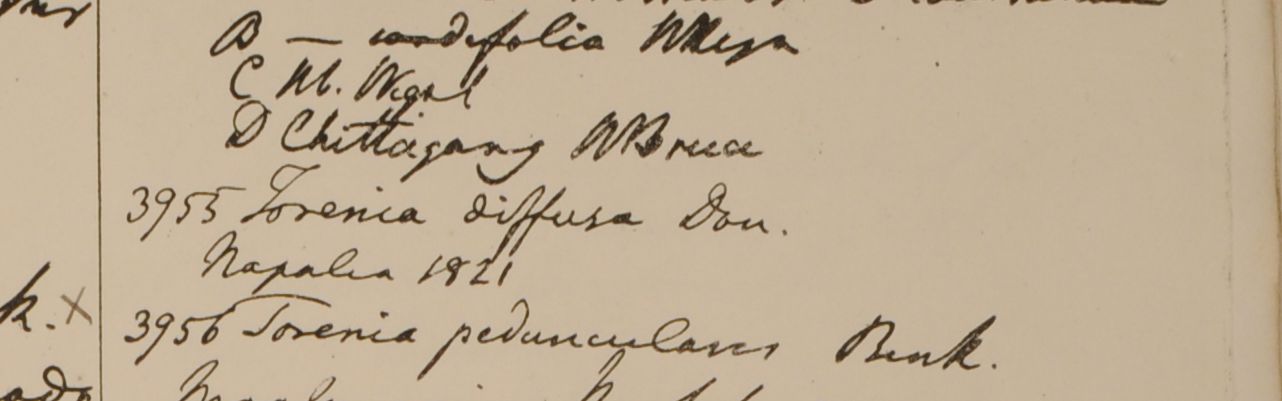 B — cordifolia HHeyn
C Hb. Wight
D Chittagong WBruce
3955 Torenia diffusa Don.
Napalia 1821
k.x
3956 Torenia peduncularis Benth.